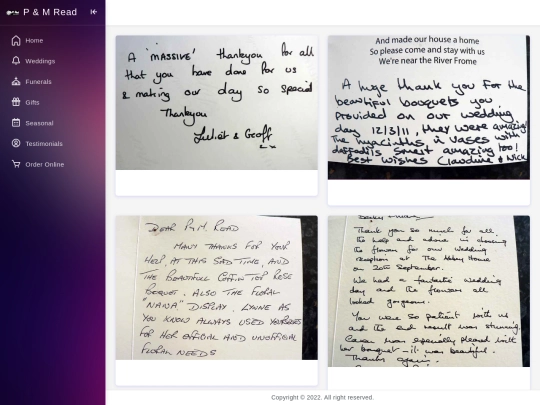 P & M Read
Home
Weddings
Funerals
Gifts
Seasonal
Testimonials
Order Online
A 'MASSIVE' thankyou for all
that you have done for us
& making our day so special
Thankyou
Juliet & Geoff
xx
And made our house a home
So please come and stay with us
We're near the River Frome
A huge thank you for the
beautiful bouquets you
provided on our wedding
day 12/3/11, they were amazing!
The hyacinths & vases with
daffodils smelt amazing too!
Best wishes Claudine & Nick
DEAR P&M. READ
MANY THANKS FOR YOUR
HELP, AT THIS SAD TIME, AND
THE BEAUTIFUL COFFIN TOP ROSE
BOQUET. ALSO THE FLORAL
"NANA" DISPLAY. LYNNE AS
YOU KNOW ALWAYS USED YOURSELVES
FOR HER OFFICIAL AND UNOFFICIAL
FLORAL NEEDS
Thank you so much for all
the help and advice in choosing
the flowers for our wedding
reception at The Abbey House
on 20th September.
We had a fantastic wedding
day and the flowers all
looked gorgeous.
You were so patient with us
and the end result was stunning.
was especially pleased with
her bouquet - it was beautiful.
Thanks again.
Copyright © 2022. All right reserved.